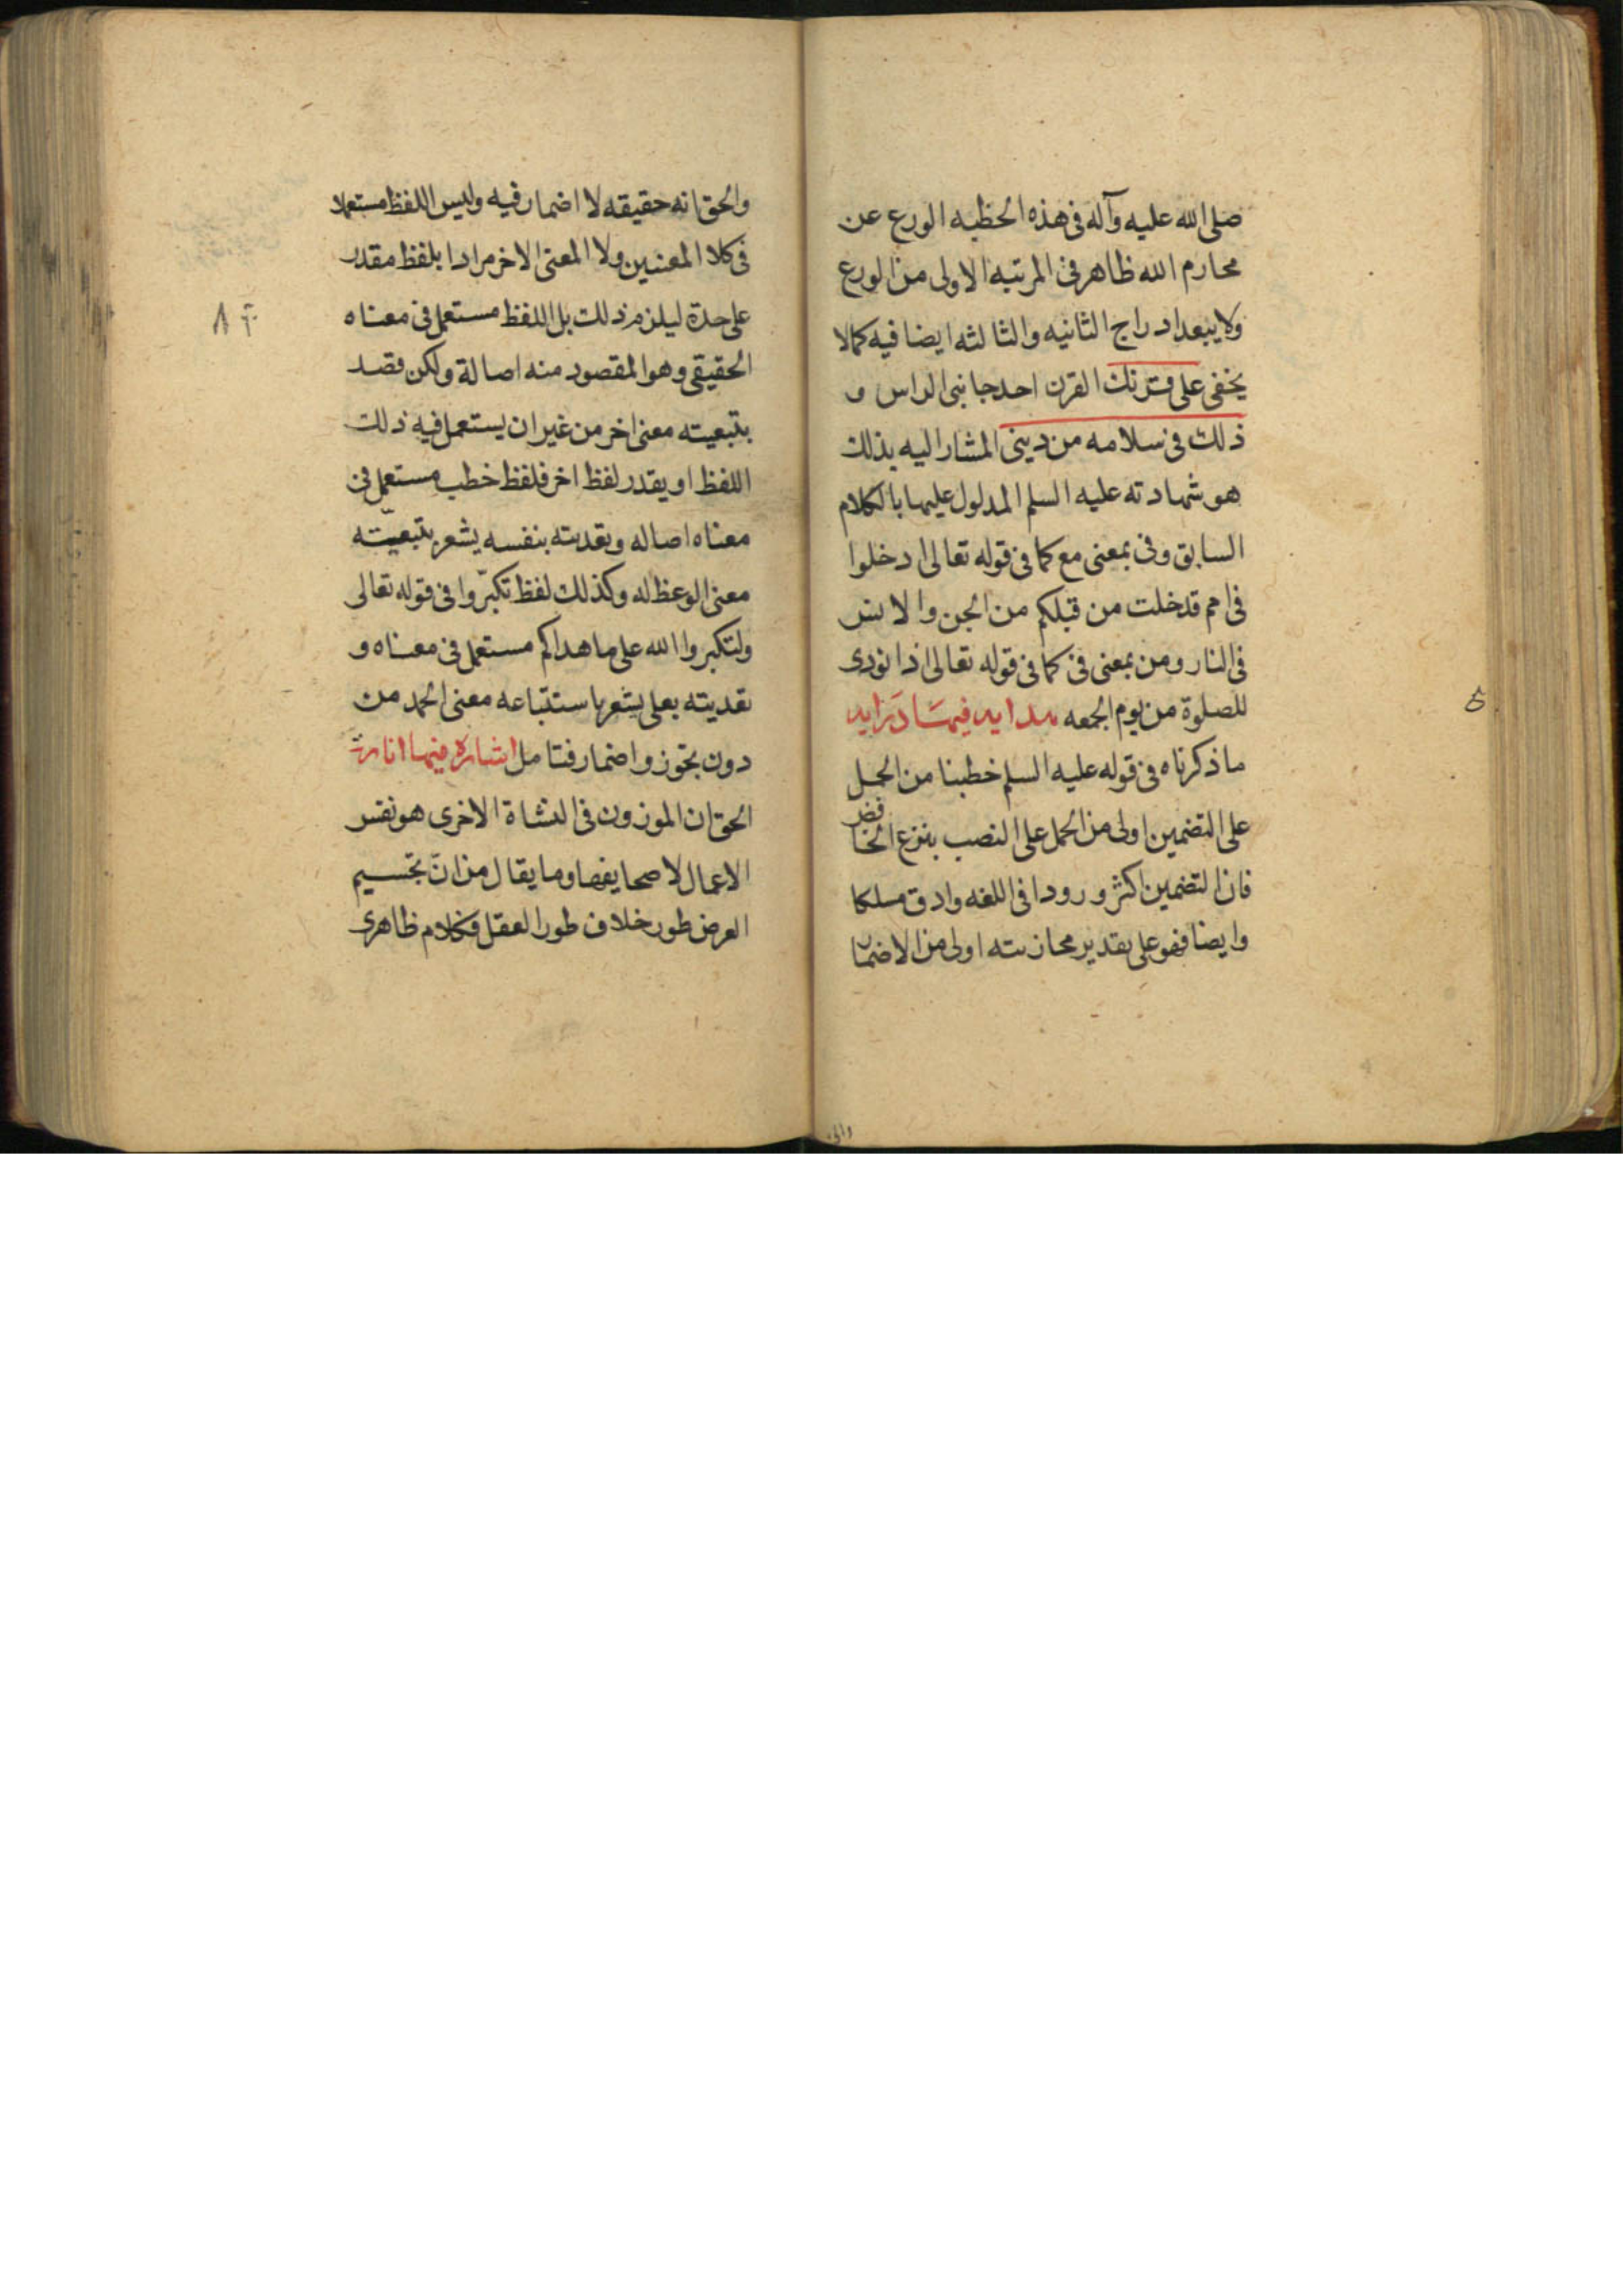 صلى الله عليه وآله فى هذه الخطبه الورع عن
محارم الله ظاهر فى المرتبه الاولى من الورع
ولا يبعد ادراج الثانيه والثالثه ايضا فيه كما لا
يخفى على قرنك القرن احد جانبى الراس و
ذلك فى سلامه من دينى المشار اليه بذلك
هو شهادته عليه السلم المدلول عليها بالكلام
السابق وفى بمعنى مع كما فى قوله تعالى ادخلوا
فى امم قد خلت من قبلكم من الجن والانس
فى النار ومن بمعنى فى كما فى قوله تعالى اذا نودى
للصلوة من يوم الجمعه هدايه فيها درايه
ما ذكرناه فى قوله عليه السلم خطبنا من الحمل
على التضمين اولى من الحمل على النصب بنزع الخافض
فان التضمين اكثر ورودا فى اللغه وادق مسلكا
وايضا فهو على تقدير مجازيته اولى من الاضمار
والحق
والحق انه حقيقه لا اضمار فيه وليس اللفظ مستعملا
فى كلا المعنيين ولا المعنى الاخر مرادا بلفظ مقدر
على حدة ليلزم ذلك بل اللفظ مستعمل فى معناه
الحقيقى وهو المقصود منه اصالة ولكن قصد
بتبعيته معنى اخر من غير ان يستعمل فيه ذلك
اللفظ او يقدر لفظ اخر فلفظ خطب مستعمل فى
معناه اصاله وتعديته بنفسه يشعر بتبعيّته
معنى الوعظ له وكذلك لفظ تكبّروا فى قوله تعالى
ولتكبروا الله على ما هداكم مستعمل فى معناه و
تعديته بعلى يشعر باستتباعه معنى الحمد من
دون تجوز واضمار فتامل اشارة فيها انارة
الحق ان الموزون فى النشاة الاخرى هو نفس
الاعمال لا صحايفها وما يقال من انّ تجسيم
العرض طور خلاف طور العقل فكلام ظاهرى